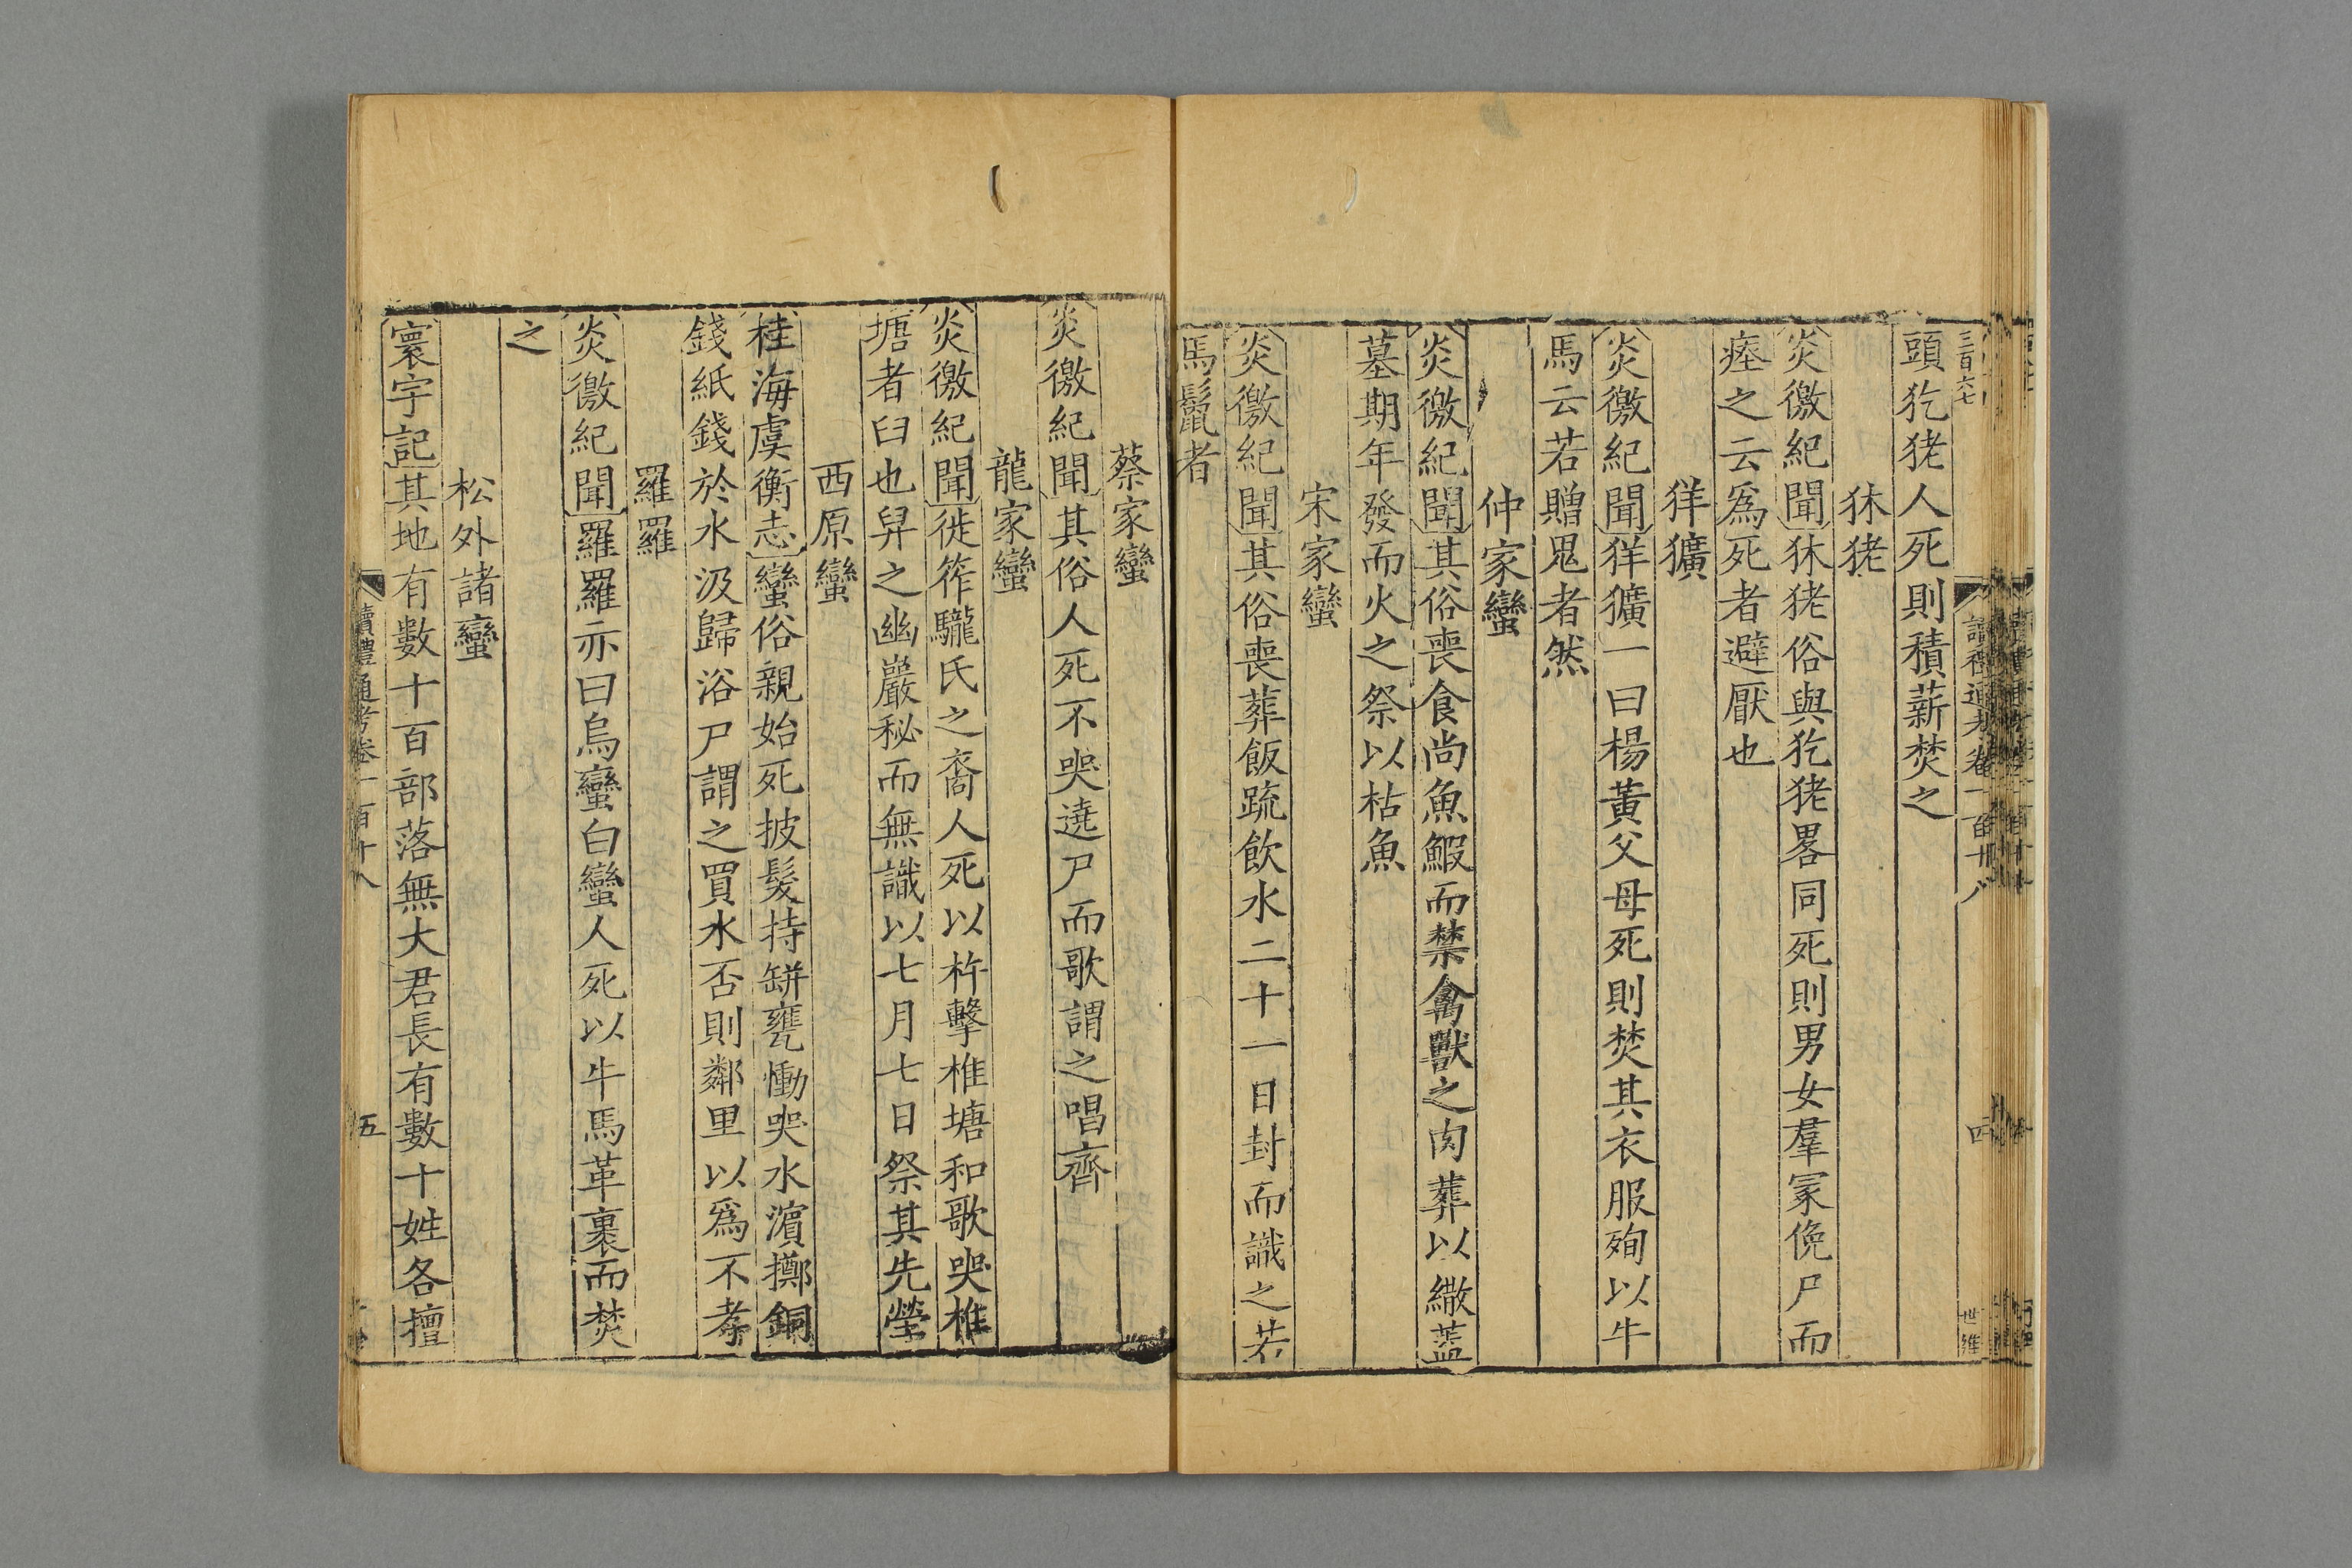 三百六七
讀禮通考卷一百十八
四
世維
頭犵狫人死則積薪焚之
㹯狫
炎徼紀聞㹯狫俗與犵狫畧同死則男女羣冢俛尸而
瘞之云爲死者避厭也
㹨獷
炎徼紀聞㹨獷一曰楊黃父母死則焚其衣服殉以牛
馬云若贈鬼者然
仲家蠻
炎徼紀聞其俗喪食尚魚鰕而禁禽獸之肉葬以繖蓋
墓期年發而火之祭以枯魚
宋家蠻
炎徼紀聞其俗喪葬飯疏飲水二十一日封而識之若
馬鬛者
蔡家蠻
炎徼紀聞其俗人死不哭遶尸而歌謂之唱齊
龍家蠻
炎徼紀聞徙筰驡氏之裔人死以杵擊椎塘和歌哭椎
塘者臼也舁之幽巖秘而無識以七月七日祭其先塋
西原蠻
桂海虞衡志蠻俗親始死披髮持缾甕慟哭水濵擲銅
錢紙錢於水汲歸浴尸謂之買水否則鄰里以爲不孝
羅羅
炎徼紀聞羅羅亦曰烏蠻白蠻人死以牛馬革裹而焚
之
松外諸蠻
寰宇記其地有數十百部落無大君長有數十姓各擅
讀禮通考卷一百十八
五